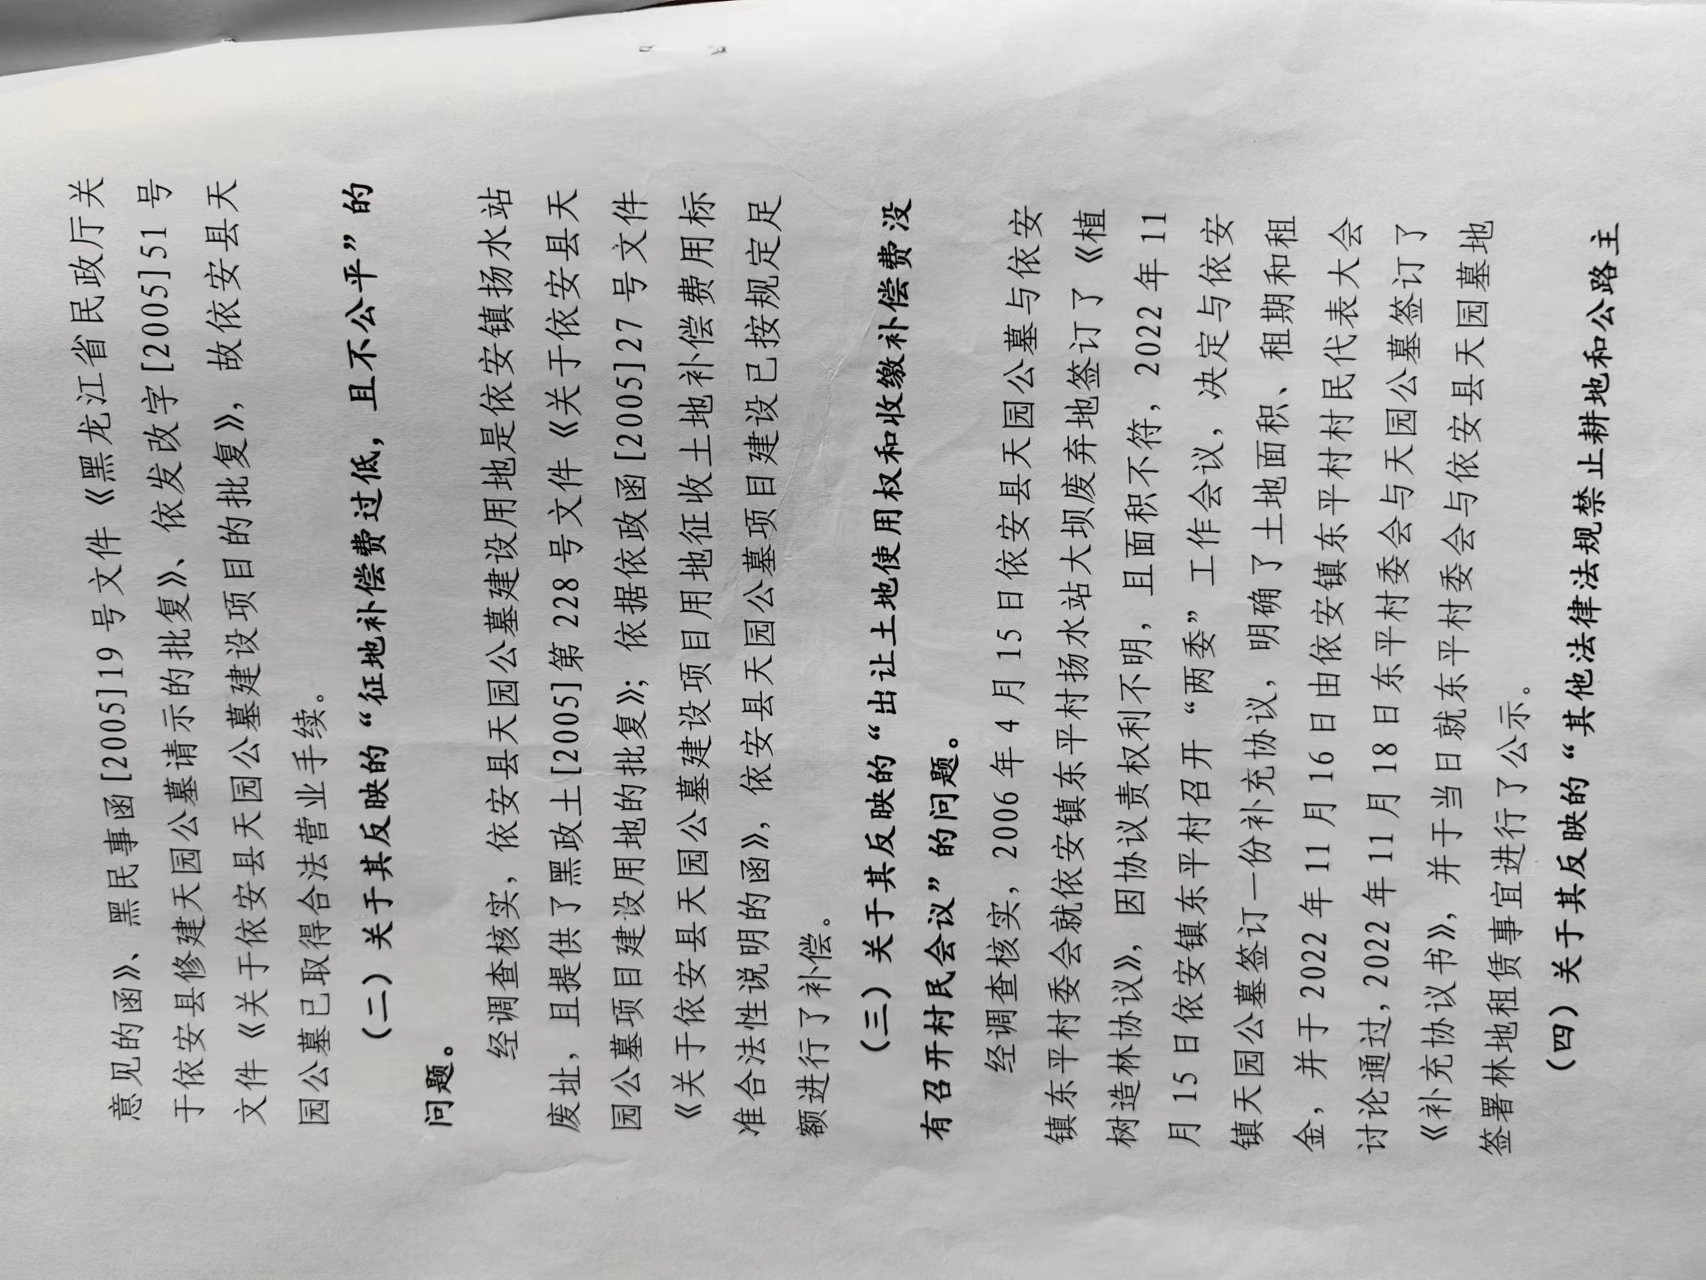 意见的函》、黑民事函[2005]19号文件《黑龙江省民政厅关
于依安县修建天园公墓请示的批复》、依发改字[2005]51号
文件《关于依安县天园公墓建设项目的批复》，故依安县天
园公墓已取得合法营业手续。
（二）关于其反映的“征地补偿费过低，且不公平”的
问题。
经调查核实，依安县天园公墓建设用地是依安镇扬水站
废址，且提供了黑政土[2005]第228号文件《关于依安县天
园公墓项目建设用地的批复》；依据依政函[2005]27号文件
《关于依安县天园公墓建设项目用地征收土地补偿费用标
准合法性说明的函》，依安县天园公墓项目建设已按规定足
额进行了补偿。
（三）关于其反映的“出让土地使用权和收缴补偿费没
有召开村民会议”的问题。
经调查核实，2006年4月15日依安县天园公墓与依安
镇东平村委会就依安镇东平村扬水站大坝废弃地签订了《植
树造林协议》，因协议责权利不明，且面积不符，2022年11
月15日依安镇东平村召开“两委”工作会议，决定与依安
镇天园公墓签订一份补充协议，明确了土地面积、租期和租
金，并于2022年11月16日由依安镇东平村村民代表大会
讨论通过，2022年11月18日东平村委会与天园公墓签订了
《补充协议书》，并于当日就东平村委会与依安县天园墓地
签署林地租赁事宜进行了公示。
（四）关于其反映的“其他法律法规禁止耕地和公路主